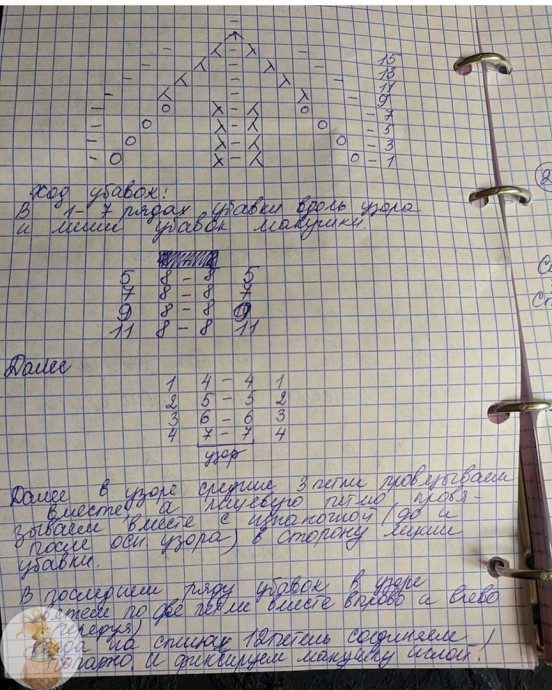 15
13
11
9
7
5
3
1
Ход убавок!
В 1-7 рядах убавки вдоль узора
и линии убавок макушки
5 8 - 8 5
7 8 - 8 7
9 8 - 8 9
11 8 - 8 11
Далее
1 4 - 4 1
2 5 - 5 2
3 6 - 6 3
4 7 - 7 4
узор
Далее в узоре средние 3 петли провязываем
вместе, а лицевую петлю провя-
зываем вместе с изнаночной (до и
после осн. узора) в сторону линии
убавки.
В последнем ряду убавок в узоре
по две петли вместе вправо и влево
на спицах 12 петель соединяем
попарно и фиксируем макушку иглой!